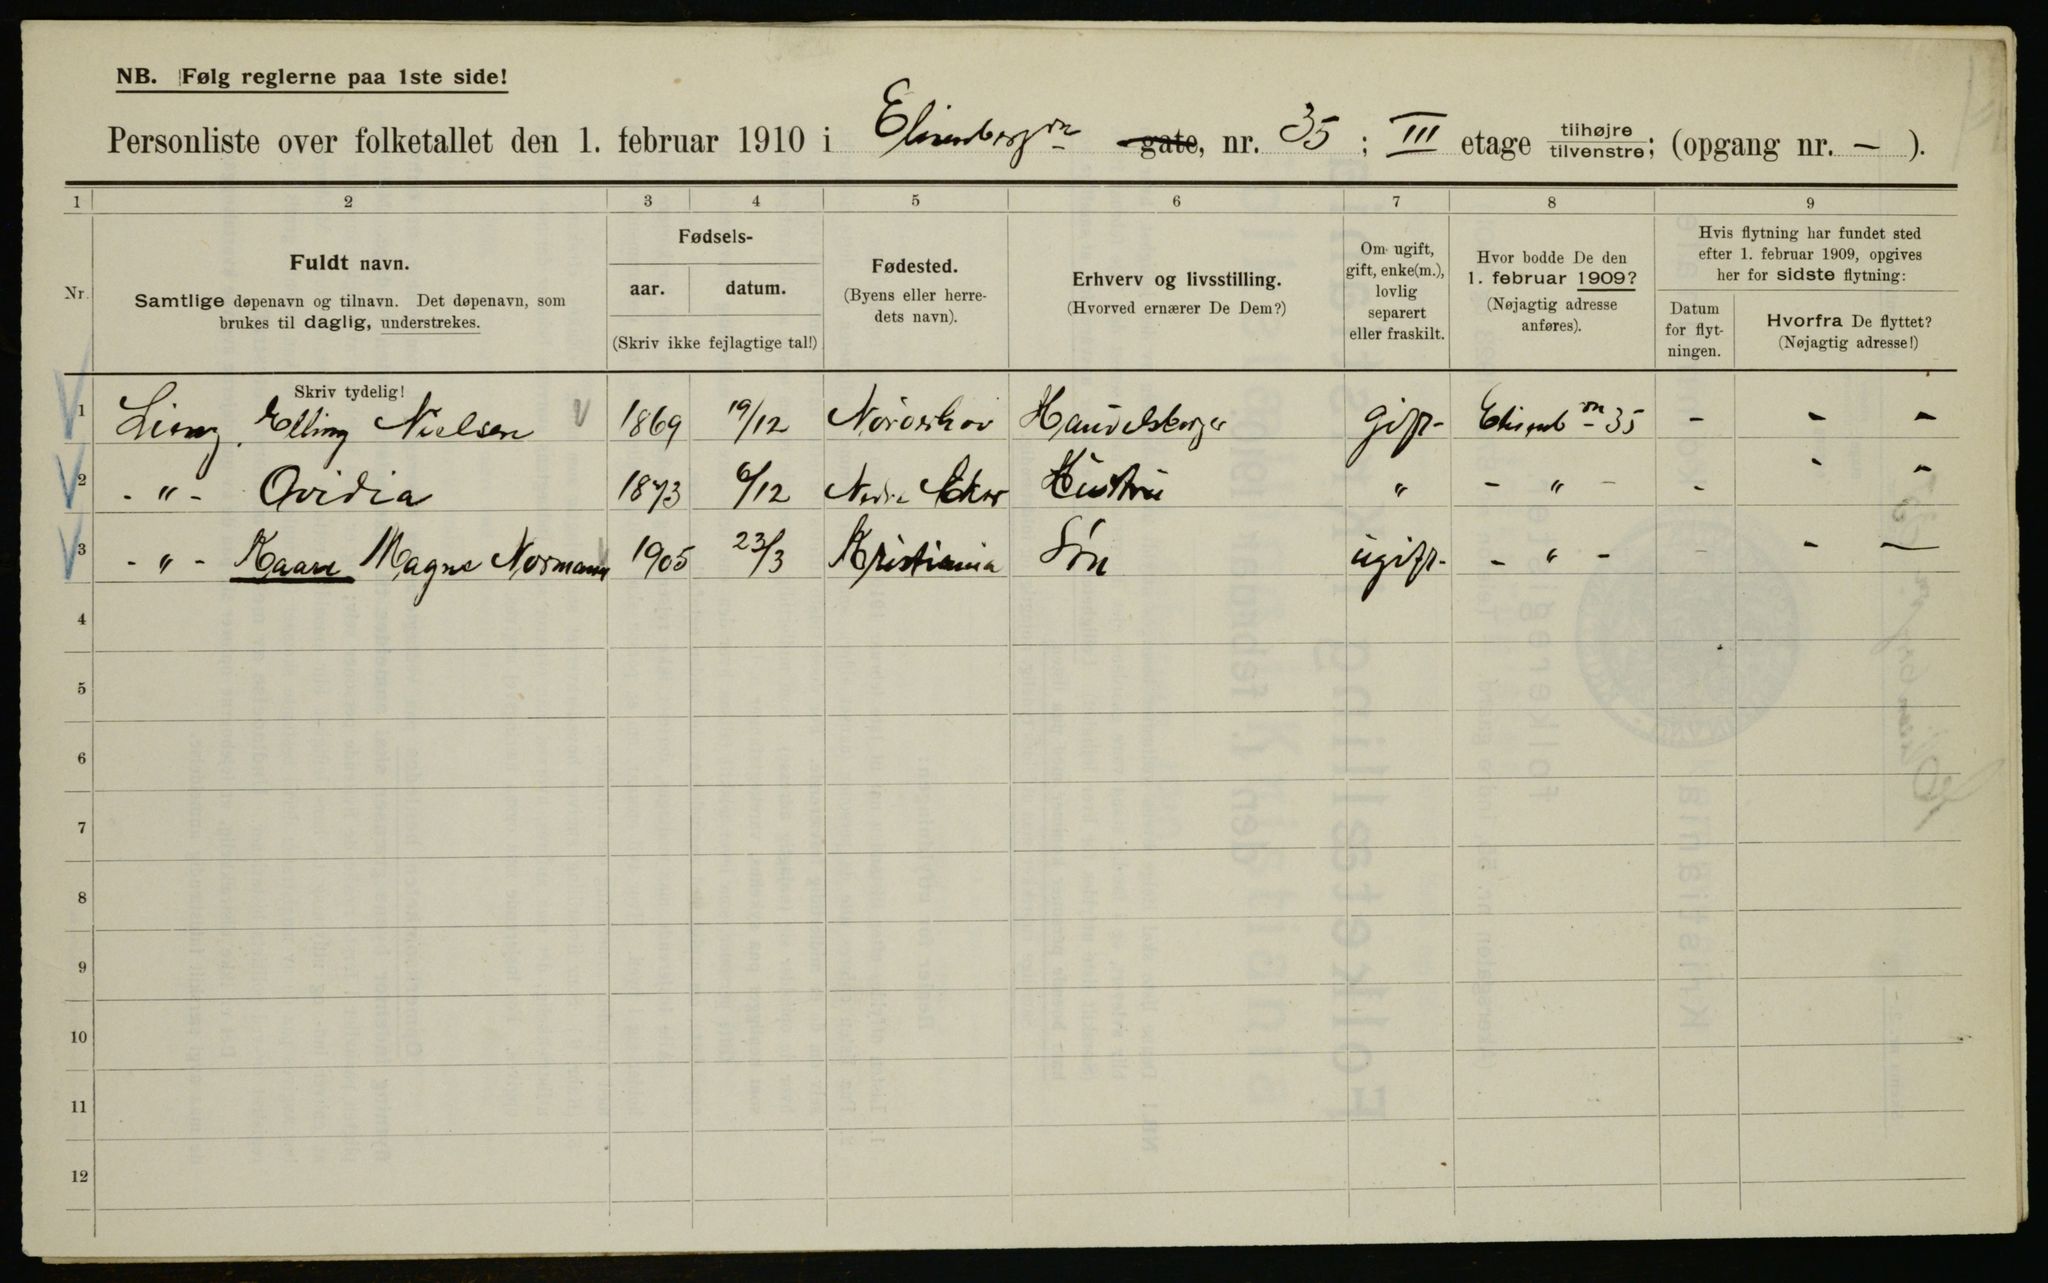 NB. Følg reglerne paa 1ste side!
Personliste over folketallet den 1. februar 1910 i Elisenbergvn gate, nr. 35; III etage tilhøjre tilvenstre; (opgang nr. - ).
1 2 3 4 5 6 7 8 9
Nr.
Fuldt navn.
Samtlige døpenavn og tilnavn. Det døpenavn, som
brukes til daglig, understrekes.
Skriv tydelig!
Fødsels-
aar. datum.
(Skriv ikke fejlagtige tal!)
Fødested.
(Byens eller herre-
dets navn).
Erhverv og livsstilling.
(Hvorved ernærer De Dem?)
Om ugift,
gift, enke(m.),
lovlig
separert
eller fraskilt.
Hvor bodde De den
1. februar 1909?
(Nøjagtig adresse
anføres).
Hvis flytning har fundet sted
efter 1. februar 1909, opgives
her for sidste flytning:
Datum
for flyt-
ningen.
Hvorfra De flyttet?
(Nøjagtig adresse!)
1 Elling Nielsen 1869 19/12 Norderhov Handelsborger gift- Elisenb vn 35 - - -
2 - " - Ovidia 1873 6/12 Nedre Eker Hustru " - " - - - -
3 - " - Kaare Magne Normann 1905 23/3 Kristiania Søn ugift- - " - - - -
4
5
6
7
8
9
10
11
12